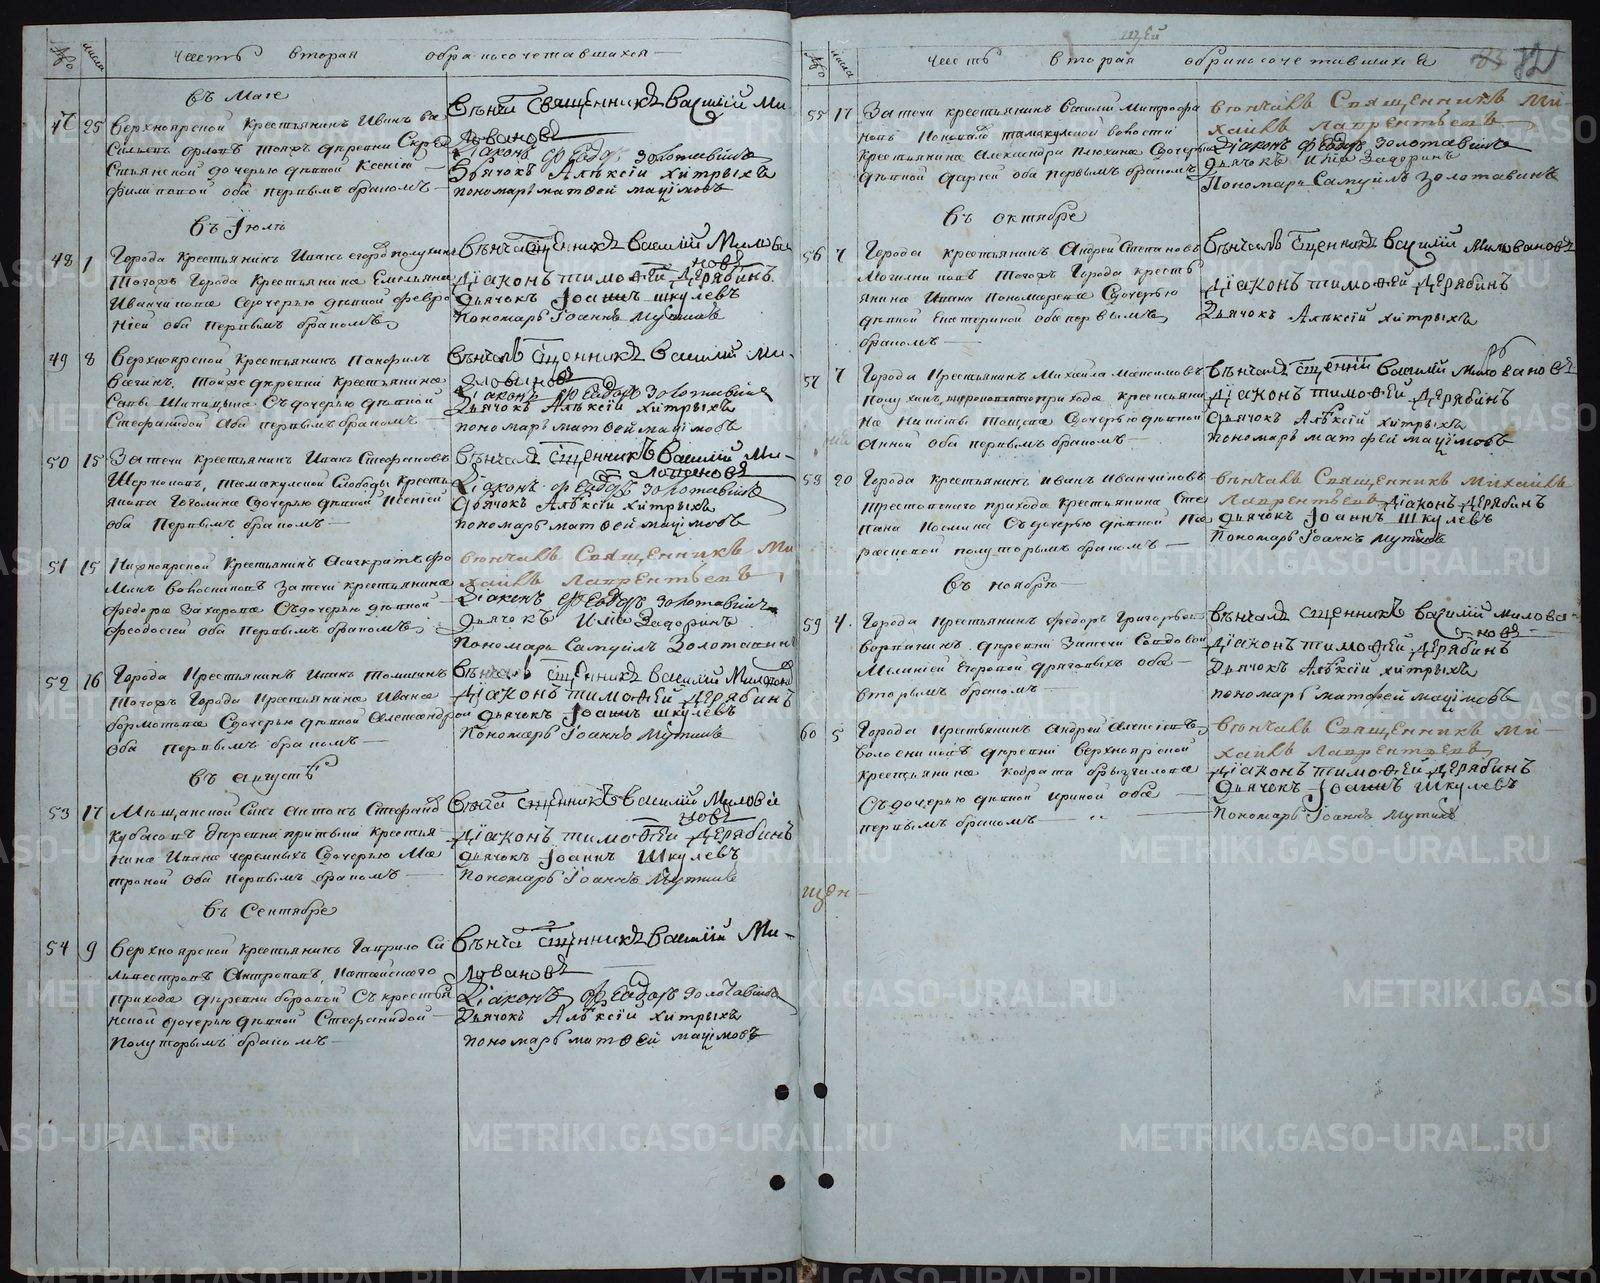 № числа Часть вторая о бракосочетавшихся
въ Мае
47 25 Верхноярской Крестьянинъ Иванъ Ва
сильевъ орловъ тояжъ деревни
дочерью девкой Ксеніею
Филиповой оба первымъ бракомъ
Венча Священникъ Василій Ми-
ловановъ
Діаконъ Феодоръ Золотавинъ
Дьячокъ Алѣксій хитрыхъ
пономарь матѳей маѯімовъ
въ Іюлѣ
48 1 Города Крестьянинъ Иванъ егоръ
тогожъ Города Крестьянина Емельяна
Иванчикова Сдочерью дѣвкой февро
ніей оба первымъ бракомъ
Вѣнча Сщенникъ Василій Милова
новъ
Діаконъ тимоѳей Дерябинъ
Дьячокъ Іоаннъ шкулевъ
Пономарь Іоаннъ Мутинъ
49 8 Верхноярской Крестьянинъ Панфилъ
тойже деревни Крестьянина
Савы Шипицына Съдочерью дѣвкой
Стефанидой оба первымъ бракомъ
Вѣнчалъ Сщенникъ Василій Ми-
ловановъ
Діаконъ Феодоръ Золотавинъ
Дьячокъ Алѣксій хитрыхъ
пономарь матѳей маѯімовъ
50 15 Затечи крестьянинъ Иванъ Стефановъ
Тамакулской Слободы кресть
янина Гоголина Сдочерью девкой Ксеніей
оба Первымъ бракомъ
Вѣнчалъ Сщенникъ Василій Ми-
ловановъ
Діаконъ Феодоръ Золотавинъ
Дьячокъ Алѣксій хитрыхъ
пономарь матѳей маѯімовъ
51 15 Нижноярской Крестьянинъ Асигкратъ Фо
минъ Затечи крестьянина
Федора Захарова Съдочерью девкой
Феодосіей оба Первымъ бракомъ
вѣнчалъ Священникъ Ми
хаилъ Лаврентьевъ
Діаконъ Феодоръ Золотавинъ
Дьячокъ Илиа Задоринъ
Пономарь Самуилъ Золотавинъ
52 16 Города Крестьянинъ Иванъ Томшинъ
тогожъ Города Крестьянина Ивана
бормотова Сдочерью девкой Александрой
оба первымъ бракомъ
Вѣнчалъ Сщенникъ Василій
Діаконъ тимоѳей Дерябинъ
Дьячокъ Іоаннъ шкулевъ
Пономарь Іоаннъ Мутинъ
въ Августѣ
53 17 Мещанской Сынъ Антонъ Стефановъ
Кубасовъ деревни кривыли Крестья
нина Ивана черемныхъ Сдочерью Ма
троной оба Первымъ бракомъ
Вѣнча Сщенникъ Василій Милова
новъ
Діаконъ тимоѳей Дерябинъ
Дьячокъ Іоаннъ Шкулевъ
Пономарь Іоаннъ Мутинъ
въ Сентябре
54 9 Верхноярской Крестьянинъ Гаврило Си
львестровъ Антроповъ, Катайского
прихода деревни боровой Съ крестья
нской дочерью девкой Стефанидой
Полуторымъ бракомъ
Вѣнча Сщенникъ Василій Ми-
ловановъ
Діаконъ Феодоръ Золотавинъ
Дьячокъ Алѣксій хитрыхъ
пономарь матѳей маѯімовъ
щей
№ числа Часть вторая о бракосочетавшихся 82
55 17 Затечи крестьянинъ Василій Митрофа
новъ Коновалъ тамакулской волости
Крестьянина Александра Плюхина Сдочерью
девкой Дарьей оба первымъ бракомъ
вѣнчалъ Священникъ Ми-
хаилъ Лаврентьевъ
Діаконъ Феодоръ Золотавинъ
Дьячокъ Илиа Задоринъ
Пономарь Самуилъ Золотавинъ
въ октябре
56 7 Города крестьянинъ Андрей Степановъ
Могильниковъ тогожъ Города кресть
янина Ивана Пономарева Сдочерью
девкой Екатериной оба первымъ
бракомъ
Вѣнчалъ Сщенникъ Василій Миловановъ
Діаконъ тимоѳей Дерябинъ
Дьячокъ Алѣксій хитрыхъ
57 7 Города Крестьянинъ Михаила Максимовъ
прихода крестьяни
на Никиты Тощева Сдочерью девкой
Анной оба первымъ бракомъ
Вѣнчалъ Сщенній Василій Миловановъ
Діаконъ тимоѳей Дерябинъ
Дьячокъ Алѣксій хитрыхъ
Пономарь матѳей маѯімовъ
58 20 Города Крестьянинъ иванъ Иванчиковъ
Крестовского прихода Крестьянина Сте
пана Съдочерью девкой Па
расковой полуторымъ бракомъ
вѣнчалъ Священникъ Михаилъ
Лаврентьевъ Діаконъ Дерябинъ
Дьячокъ Іоаннъ Шкулевъ
Пономарь Іоаннъ Мутинъ
въ ноябрѣ
59 4. Города Крестьянинъ Федоръ Григорьевъ
деревни Затечи Совдовой
Егоровой оба
вторымъ бракомъ
Вѣнчалъ Сщенникъ Василій Милова-
новъ
Діаконъ тимоѳей Дерябинъ
Дьячокъ Алѣксій хитрыхъ
пономарь матѳей маѯімовъ
60 5 Города Крестьянинъ Андрей Алексіевъ
деревни Верхноярской
крестьянина Кодрата брызгалова
Съдочерью девкой Ириной оба
первымъ бракомъ
вѣнчалъ Священникъ Ми-
хаилъ Лаврентьевъ
Діаконъ тимоѳей Дерябинъ
Дьячекъ Іоаннъ Шкулевъ
Пономарь Іоаннъ Мутинъ
щен
METRIKI.GASO-URAL.RU